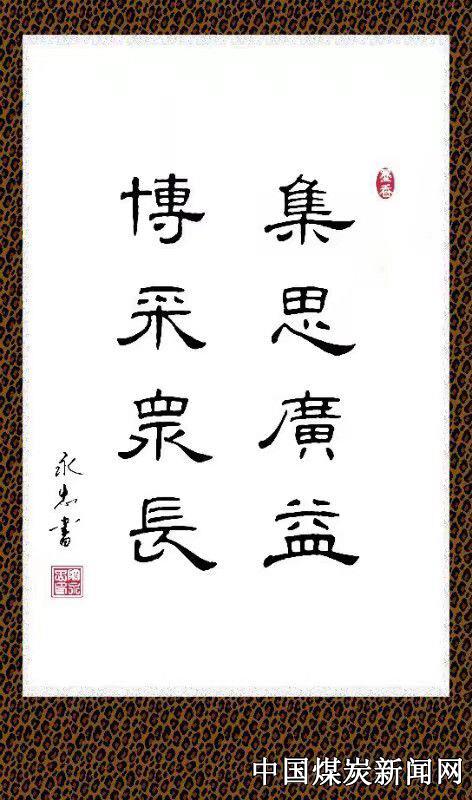 集思廣益
博采眾長
永忠書
中国煤炭新闻网